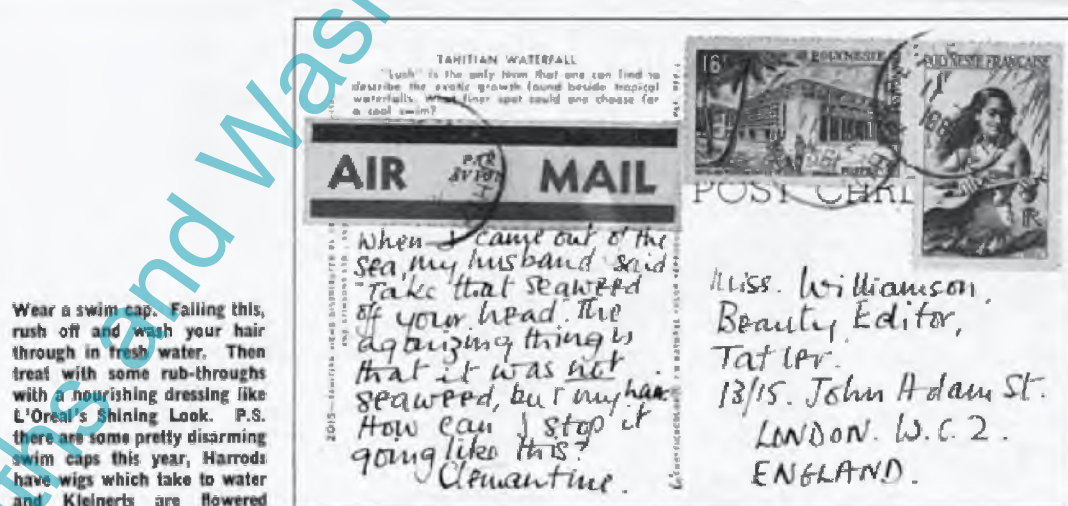 Wear a swim cap. Failing this,
rush off and wash your hair
through in fresh water. Then
treat with some rub-throughs
with a nourishing dressing like
L'Oreal's Shining Look. P.S.
there are some pretty disarming
swim caps this year, Harrods
have wigs which take to water
and Kleinerts are flowered
TAHITIAN WATERFALL
"Lush" is the only term that one can find to
describe the exotic growth found beside tropical
waterfalls. What finer spot could one choose for
a cool swim?
AIR MAIL
PAR
AVION
When I came out of the
sea, my husband said
"Take that seaweed
off your head. The
agonizing thing is
that it was not
seaweed, but my hair
How can I stop it
going like this?
Clemantine.
16F
POLYNESIE
POLYNESIE FRANÇAISE
POST CARD
Miss. Williamson,
Beauty Editor,
Tatler.
13/15. John Adam St.
LONDON. W.C. 2.
ENGLAND.
ths and Wash